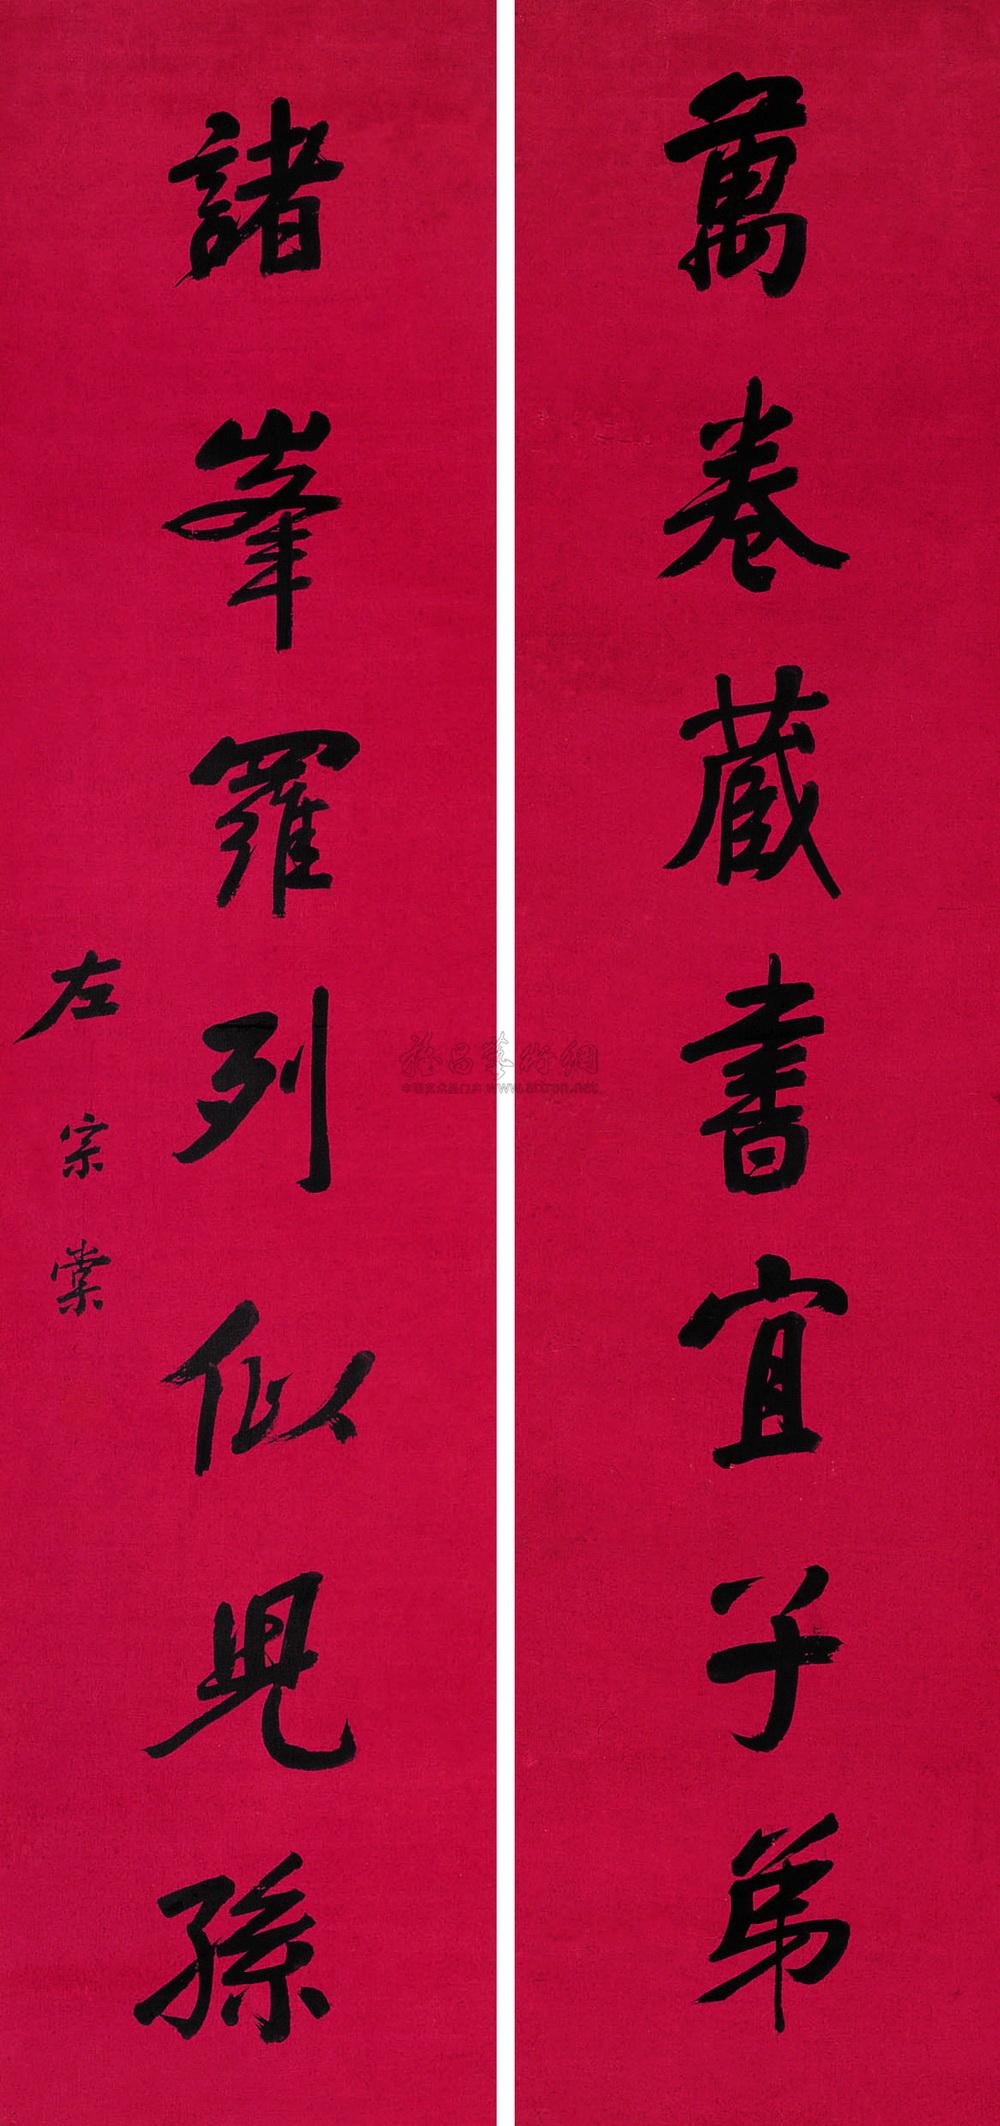 萬卷藏書宜子弟
諸峯羅列似兒孫
左宗棠
雅昌藝術網
www.artron.net